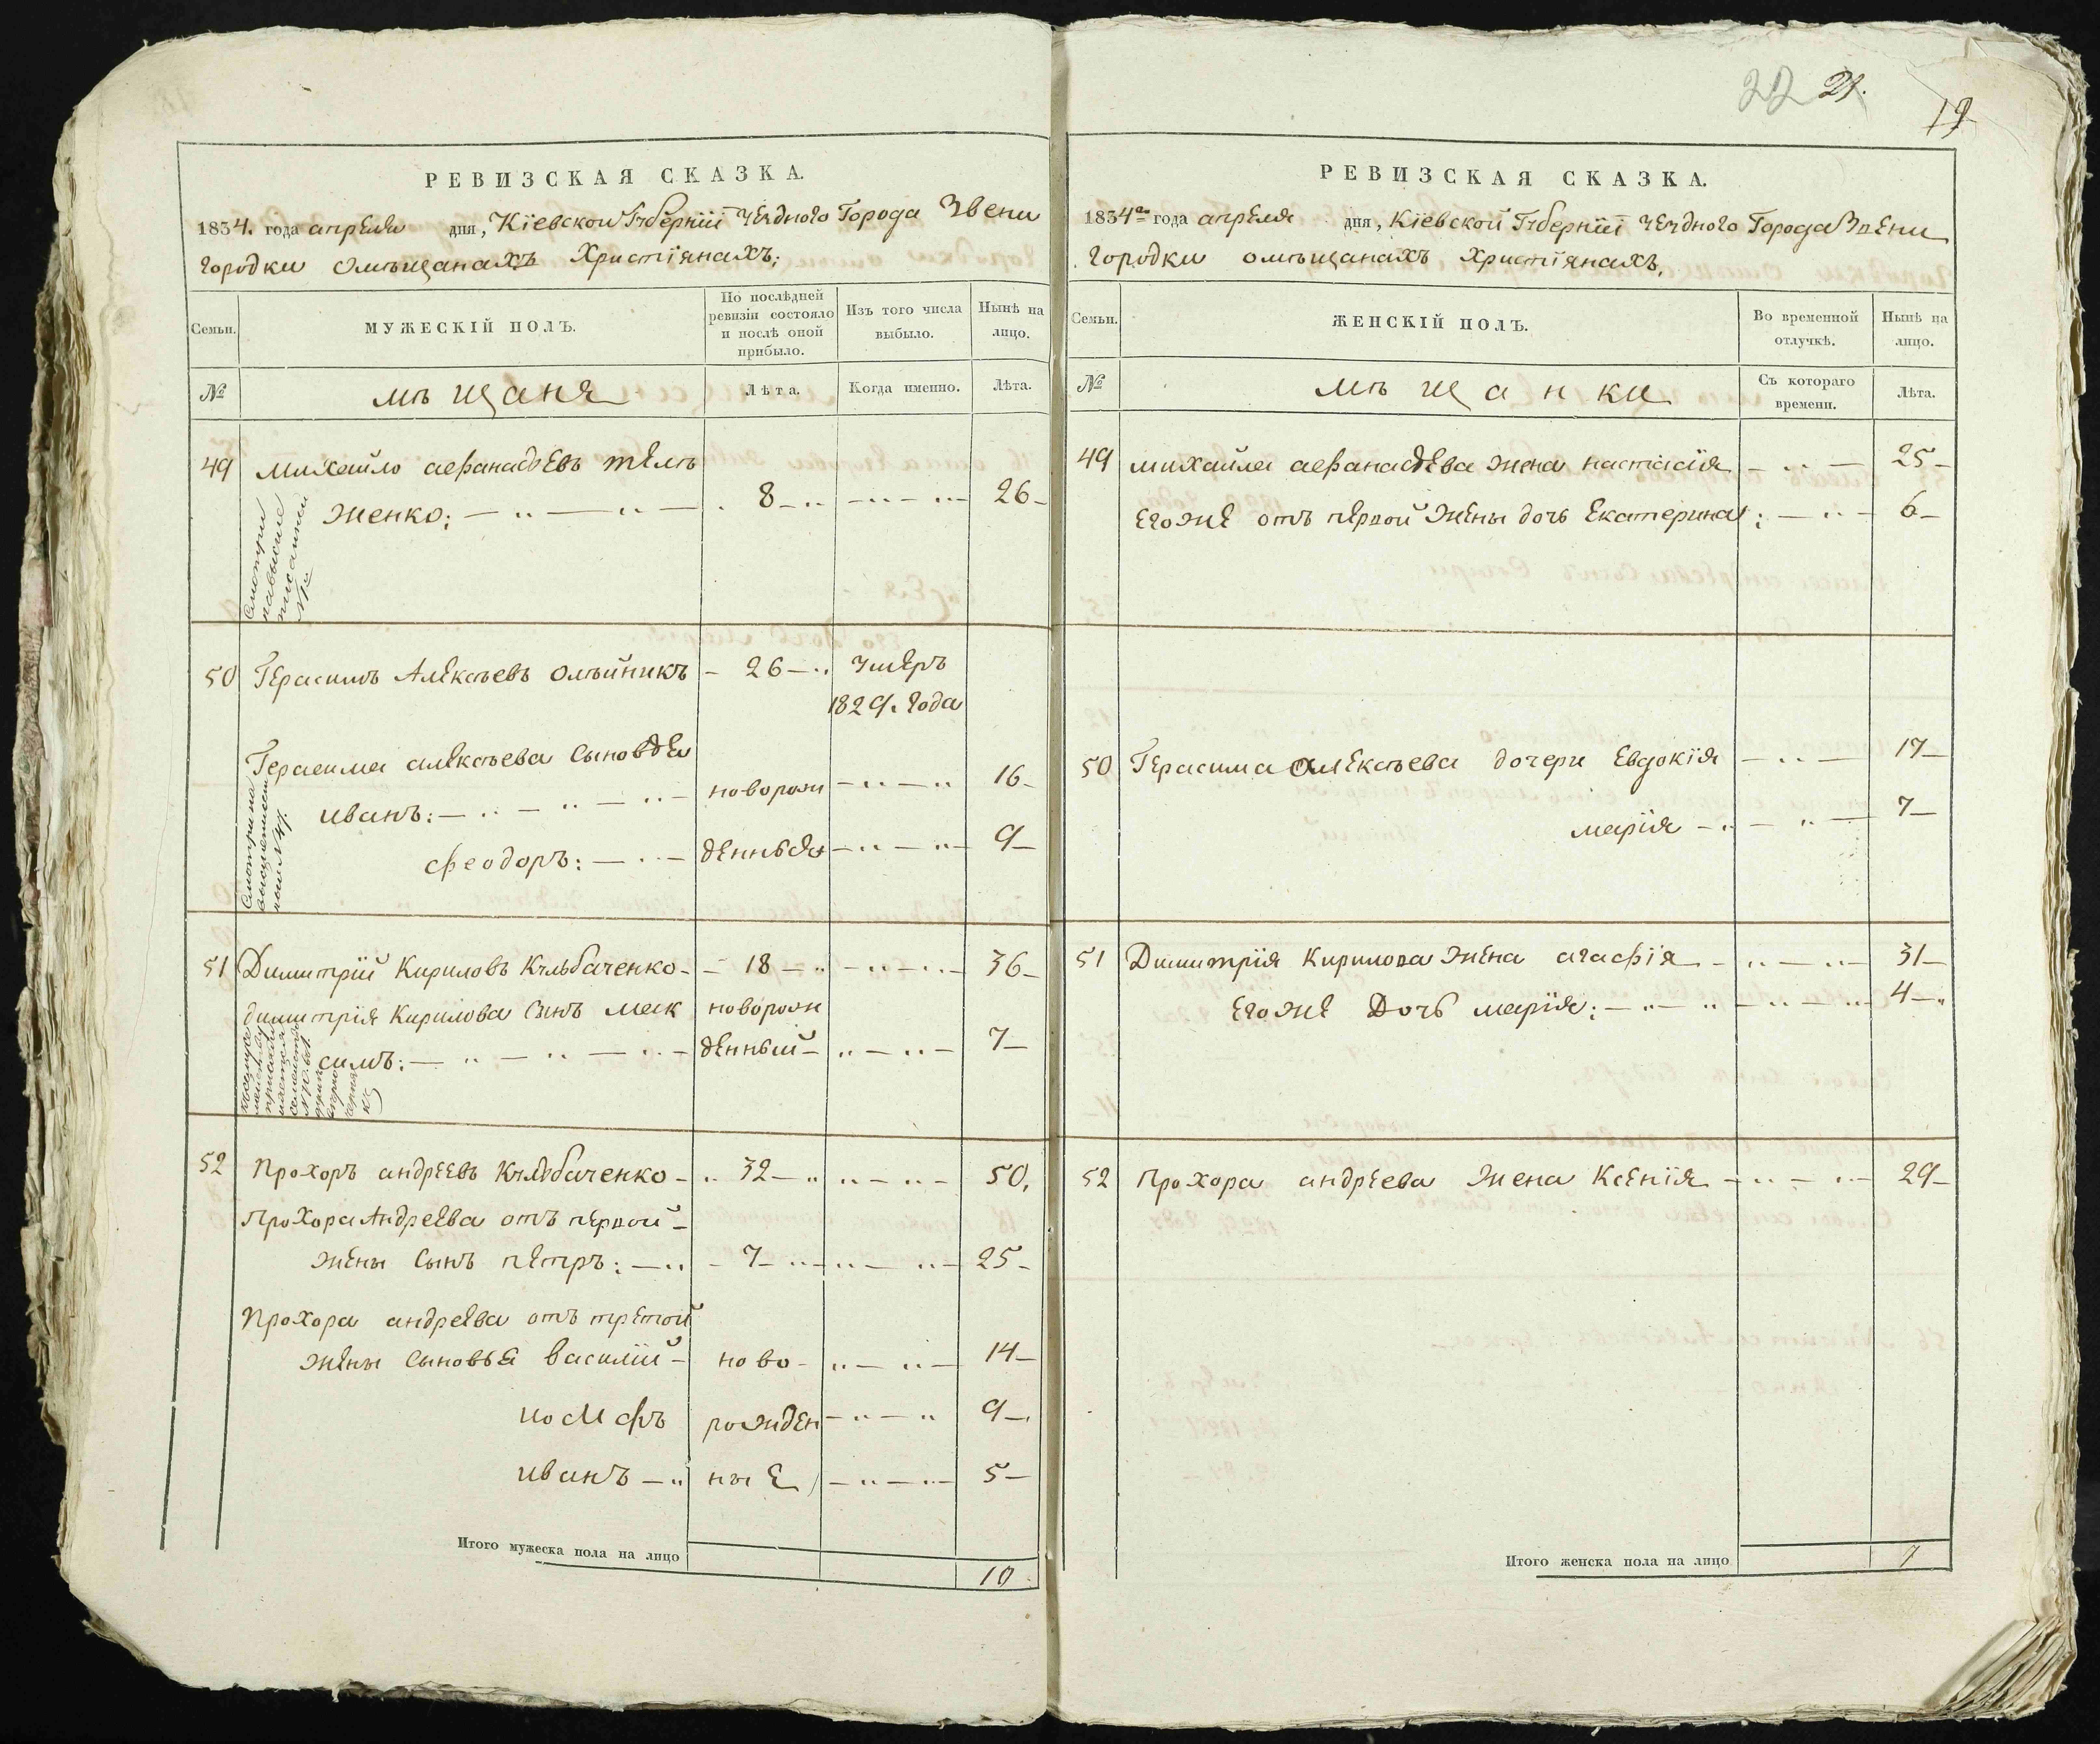 22 21.
19
РЕВИЗСКАЯ СКАЗКА.
1834. года апреля дня, Кіевской Губерніи Уезднаго Города Звени
городки омѣщанахъ Христіянахъ;
Семьи.
МУЖЕСКІЙ ПОЛЪ.
По послѣдней ревизіи состояло и послѣ оной прибыло.
Изъ того числа выбыло.
Нынѣ на лицо.
№
мѣщаня
Лѣта.
Когда именно.
Лѣта.
49 Михайло афанасьевъ теле
женко; 8 26
50 Герасимъ Алексѣевъ Олѣйникъ 26 умеръ
1829. года
Герасима алексѣева сыновья
иванъ: новорож 16
феодоръ: денныя 9
51 Димитрій Кириловъ Кульбаченко 18 36
димитрія Кирилова сынъ мак новорож
симъ: денный 7
52 Прохоръ андреевъ Кульбаченко 32 50.
Прохора Андреева отъ первой
жены сынъ петръ: 7 25
Прохора андреева отъ третой
жены сыновья василій ново 14
иосифъ рожден 9
иванъ ные 5
Итого мужеска пола на лицо 10
РЕВИЗСКАЯ СКАЗКА.
1834го года апреля дня, Кіевской Губерніи Уезднаго Города Звени
городки омѣщанахъ Христіянахъ,
Семьи.
ЖЕНСКІЙ ПОЛЪ.
Во временной отлучкѣ.
Нынѣ на лицо.
№
мѣщанки
Съ котораго времени.
Лѣта.
49 михайла афанасьева жена настасія 25
его же отъ первой жены дочь Екатерина; 6
50 Герасима алексѣева дочери Евдокія 17
марія 7
51 Димитрія Кирилова жена агафія 31
его же Дочь марія; 4
52 Прохора андреева жена Ксенія 29
Итого женска пола на лицо 7